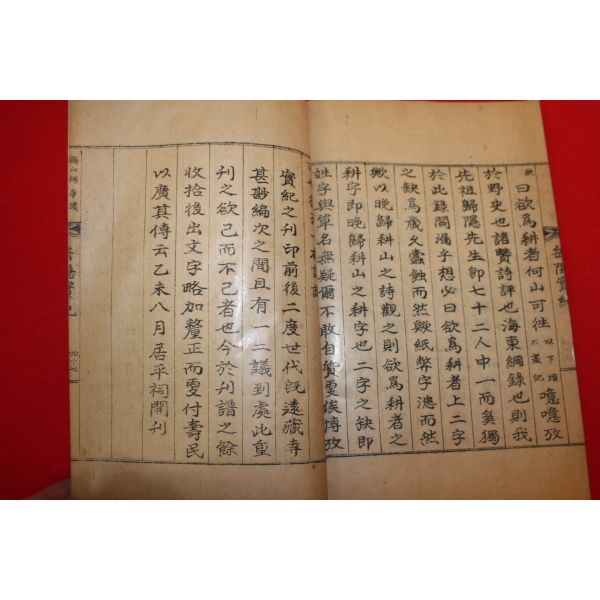 曰欲爲耕者何山可徃 以下煩不盡記 噫噫攷
於野史也諸賢詩評也海東綱錄也則我
先祖歸隱先生卽七十二人中一而奚獨
於此錄闕漏乎想必曰欲爲耕者上二字
之缺爲歲久蠧蝕而然歟紙弊字漶而然
歟以晩歸耕山之詩觀之則欲爲耕者之
耕字卽晩歸耕山之耕字也二字之缺卽
姓字與單名無疑爾不敢自質更俟博攷
實紀之刊印前後二度世代旣遠藏寺
甚尠編次之間且有一二議到處此重
刊之欲已而不已者也今於刊譜之餘
收拾後出文字略加釐正而更付壽民
以廣其傳云乙未八月居平祠開刊